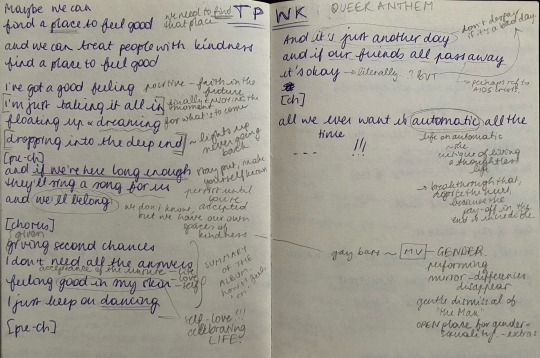 Maybe we can
find a place to feel good
we need to find
that place
and we can treat people with kindness
find a place to feel good
i've got a good feeling
positive - faith in the
future
i'm just taking it all in
finally ENJOYING the
moment
floating up & dreaming
for what's to come
dropping into the deep end
~ lights up
never going
back
[pre-ch]
and if we're here long enough
stay put, make
yourself known
they'll sing a song for us
persist until
you're
accepted
and we'll belong
we don't know,
but we have our own
spaces of
kindness
[chorus]
given
giving second chances
I don't need all the answers
acceptance of the unsure
- life
- love
- self
feeling good in my skin
I just keep on dancing
SUMMARY
OF THE
ALBUM
self-love!!!
celebrating
LIFE!
[pre-ch]
TPWK
QUEER ANTHEM
And it's just another day
don't despair
if it's a bad day
and if our friends all pass away
it's okay
→ literally
? BUT
perhaps ref to
AIDS crisis
[ch]
all we ever want is automatic all the
time
... !!!
life on automatic
~ the
of living
a thoughtless
life
→ breakthrough that,
because the
pay-off in the
end is incredible
gay bars ~
MV
GENDER
performing
mirror - differences
disappear
gentle dismissal of
'the Man'
OPEN place for gender
sexuality - extras